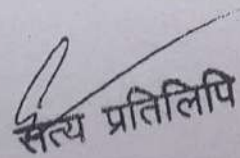 सत्य प्रतिलिपि